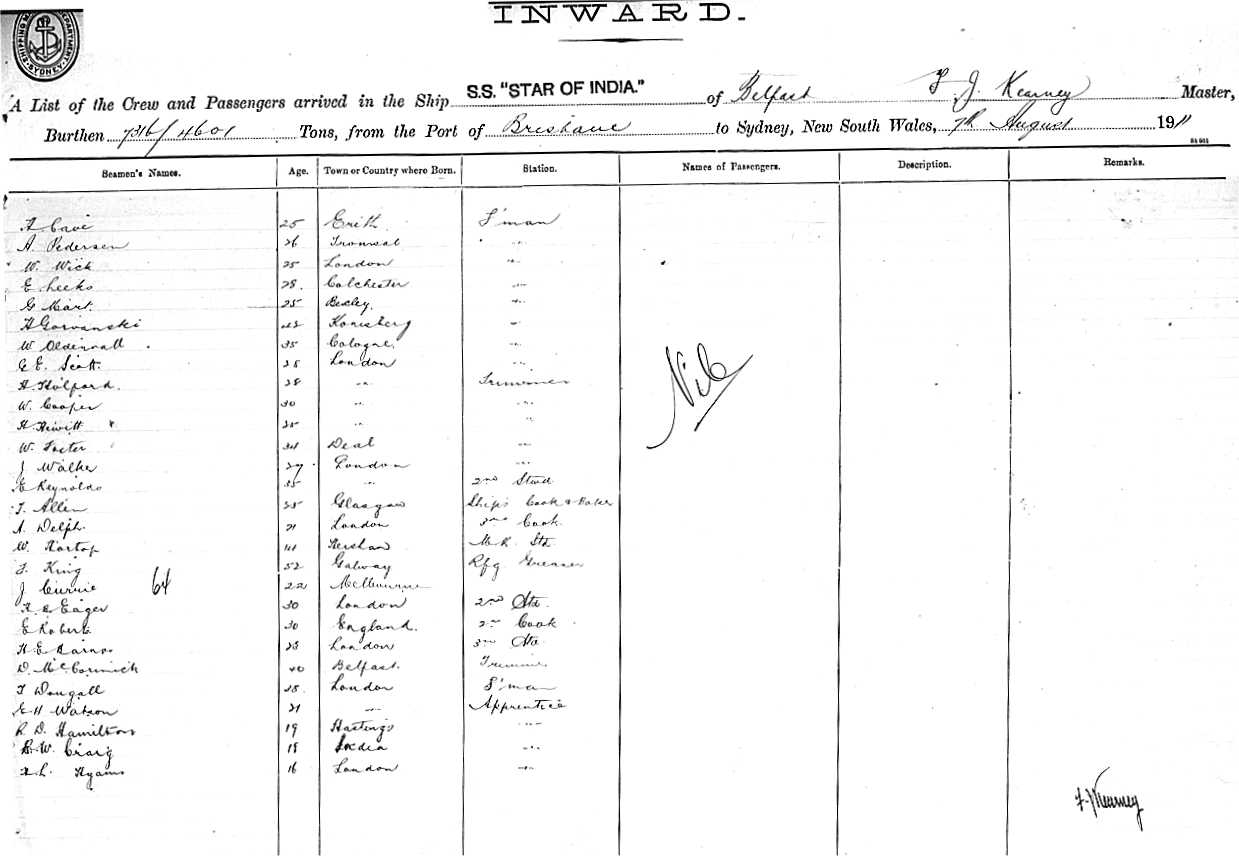 SHIPPING DEPARTMENT SYDNEY
INWARD.
A List of the Crew and Passengers arrived in the Ship S.S. "STAR OF INDIA." of Belfast J. Kearney Master,
Burthen 7316/4601 Tons, from the Port of Brisbane to Sydney, New South Wales, 7th August 1911
Seamen's Names. Age. Town or Country where Born. Station. Names of Passengers. Description. Remarks.
Cave 25 Erith F'man
A. Pedersen 26 "
W. Wick 25 London "
E Leeks 28. Colchester "
G Mart. 25 Bexley. "
H Gorvanski 42 Konisberg "
W Oldenvall 35 Cologne. "
G E. Scott. 28 London "
H. Holford. 28 " Trimmer
W. Cooper 30 " "
H Hewitt 25 " "
W. Foster 34 Deal "
J Walker 27 London "
E Reynolds 35 " 2nd Stwd
T. Allen 25 Glasgow Ship's Cook & Baker
A. Delph. 21 London 3rd Cook
W. Hartop 41 M.R. Std
King 52 Galway Rfg Greaser
J Currie 64 22 Melbourne
Eager 30 London 2nd Std.
E Roberts 30 England. 2nd Cook
H E 23 London 3rd Std
D. McCormick 40 Belfast. Trimmer
T Dougall 28. London F'man
E H Watson 21 " Apprentice
R. D. Hamilton 19 Hastings "
W. Craig 18 India "
L. Hyams 16 London "
Nil
F J Kearney